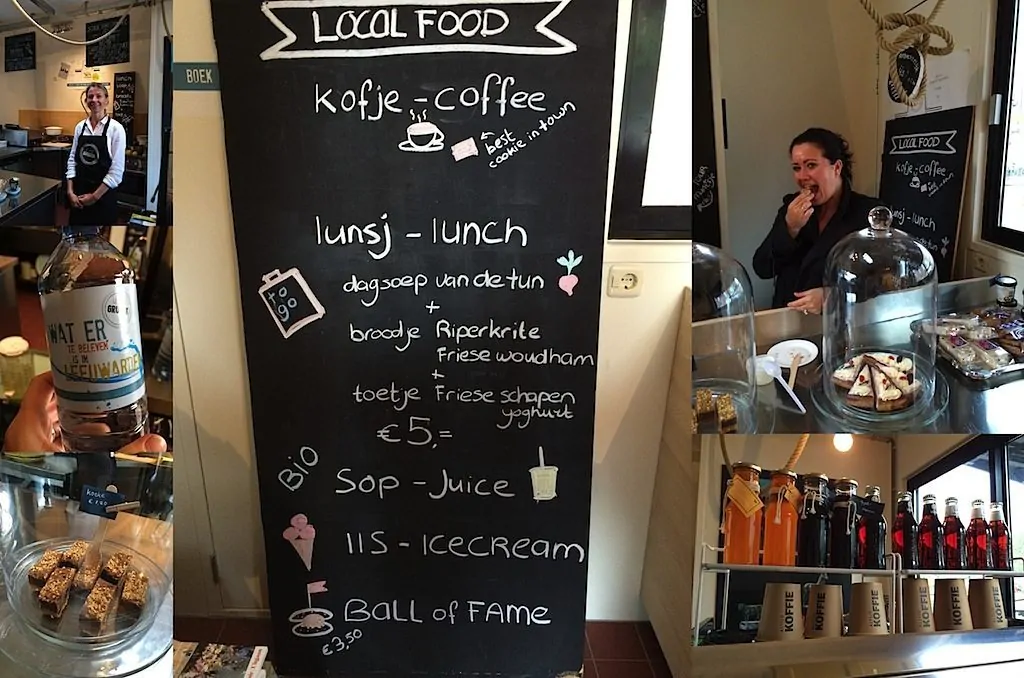 BOEK
LOCAL FOOD
kofje - coffee
best
cookie in town
lunsj - lunch
to
go
dagsoep van de tun
+
broodje Riperkrite
Friese woudham
+
toetje Friese schapen
yoghurt
€ 5,=
BIO
SOP - Juice
IIS - ICECREAM
BALL of FAME
€ 3,50
WAT ER
TE BELEVEN
IS IN
LEEUWARDE
koeke
LOCAL FOOD
kofje - coffee
lunsj - lunch
KOFFIE
KOFFIE
KOFFIE
KOFFIE
KOFFIE
KOFFIE